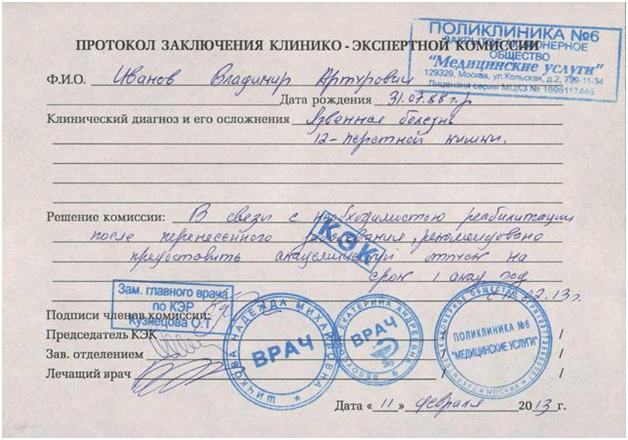 ПОЛИКЛИНИКА №6
ЗАКРЫТОЕ АКЦИОНЕРНОЕ
ОБЩЕСТВО
"Медицинские услуги"
129329, Москва, ул.Кольская, д.2, 799-11-34
Лицензия серия МЦАЗ № 1898117446
ПРОТОКОЛ ЗАКЛЮЧЕНИЯ КЛИНИКО - ЭКСПЕРТНОЙ КОМИССИИ
Ф.И.О. Иванов Владимир Артурович
Дата рождения 31.07.88 г.р
Клинический диагноз и его осложнения Язвенная болезнь
12-перстной кишки.
Решение комиссии: В связи с необходимостью реабилитации
после перенесенного заболевания, рекомендовано
предоставить академический отпуск на
срок 1 акад год
КЭК
Зам. главного врача
по КЭР
Кузнецова О.Т
Подписи членов комиссии:
Председатель КЭК / /
Зав. отделением / /
Лечащий врач / /
НАДЕЖДА МИХАЙЛОВНА
ВРАЧ
ЕКАТЕРИНА АНДРЕЕВНА
ВРАЧ
ПОЛИКЛИНИКА №6
"МЕДИЦИНСКИЕ УСЛУГИ"
МОСКВА
Дата «11» февраля 2013 г.